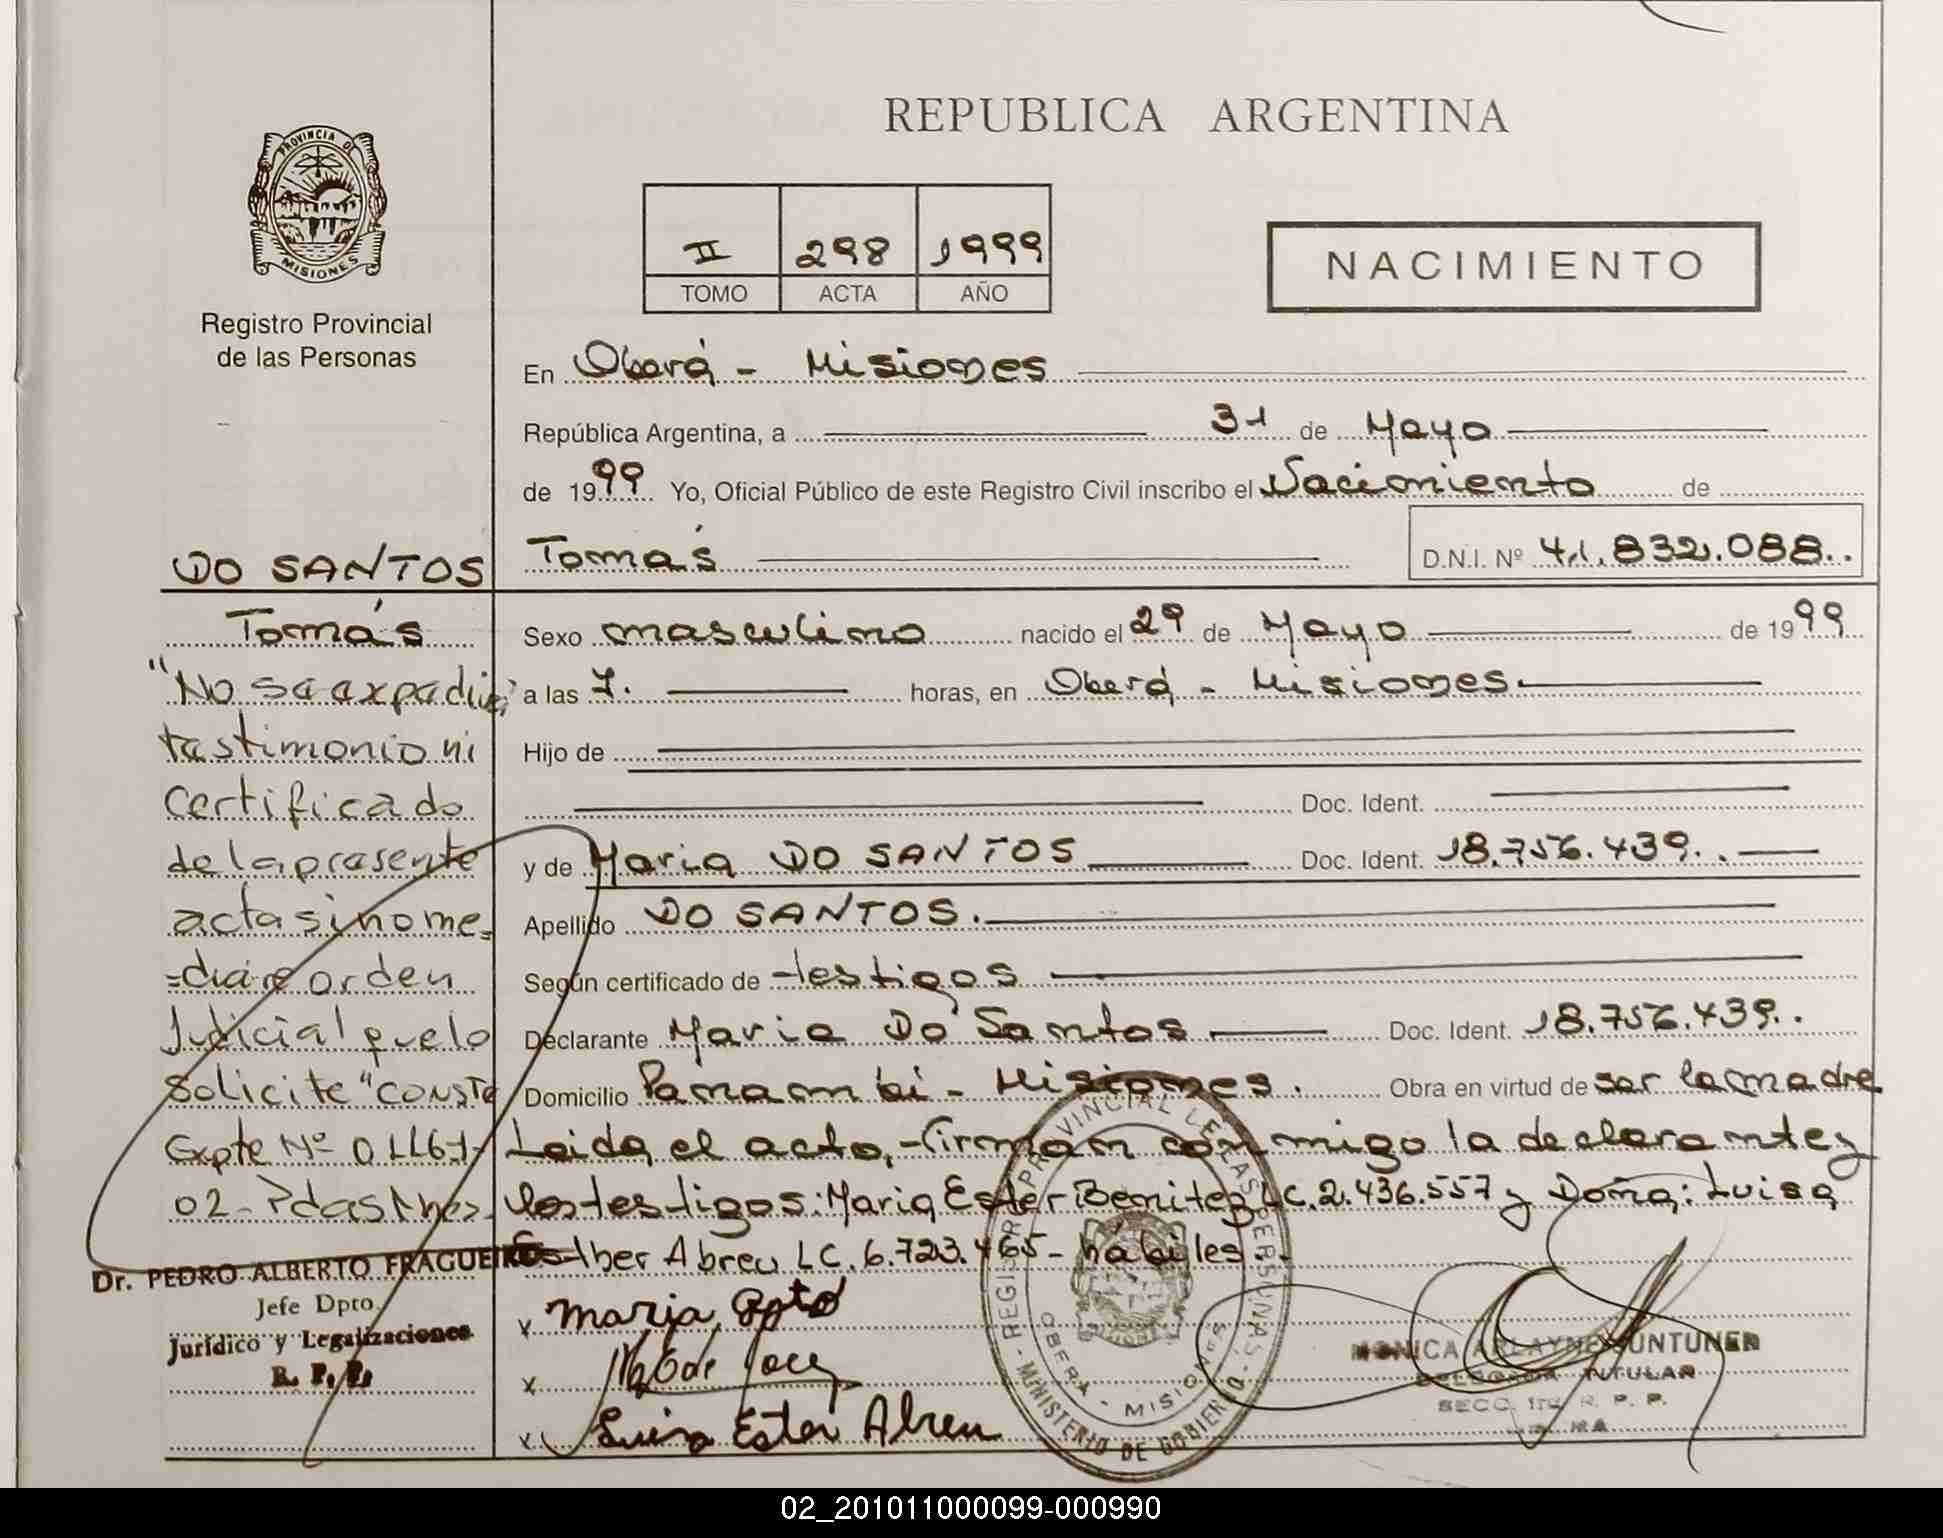 PROVINCIA DE
MISIONES
Registro Provincial
de las Personas
REPUBLICA ARGENTINA
II 298 1999
TOMO ACTA AÑO
NACIMIENTO
En Oberá - Misiones
República Argentina, a 31 de Mayo
de 1999 Yo, Oficial Público de este Registro Civil inscribo el Nacimiento de
Tomás D.N.I. Nº 41.832.088..
Sexo masculino nacido el 29 de Mayo de 1999
a las 7. horas, en Oberá - Misiones.
Hijo de
Doc. Ident.
y de Maria DO SANTOS Doc. Ident. 18.756.439..
Apellido DO SANTOS.
Según certificado de testigos
Declarante Maria Do Santos Doc. Ident. 18.756.439..
Domicilio Panambí - Misiones. Obra en virtud de ser la madre
Leida el acto, firman conmigo la declarante y
los testigos: Maria Ester Benitez LC.2.436.557 y Doña: Luisa
Esther Abreu LC.6.723.465- hábiles.
x Maria
x
x Luisa Ester Abreu
DO SANTOS
Tomás
"No se expedirá
testimonio ni
certificado
de la presente
acta si no me=
=diare orden
Judicial que lo
Solicite" CONSTE
Expte Nº 01167-
02-Pdas Mnes.
Dr. PEDRO ALBERTO FRAGUEIRO
Jefe Dpto.
Jurídico y Legalizaciones
R. P. P.
REGISTRO PROVINCIAL DE LAS PERSONAS - MINISTERIO DE GOBIERNO
OBERA - MISIONES
MONICA
TITULAR
SECC. 1ra R. P. P.
02_201011000099-000990